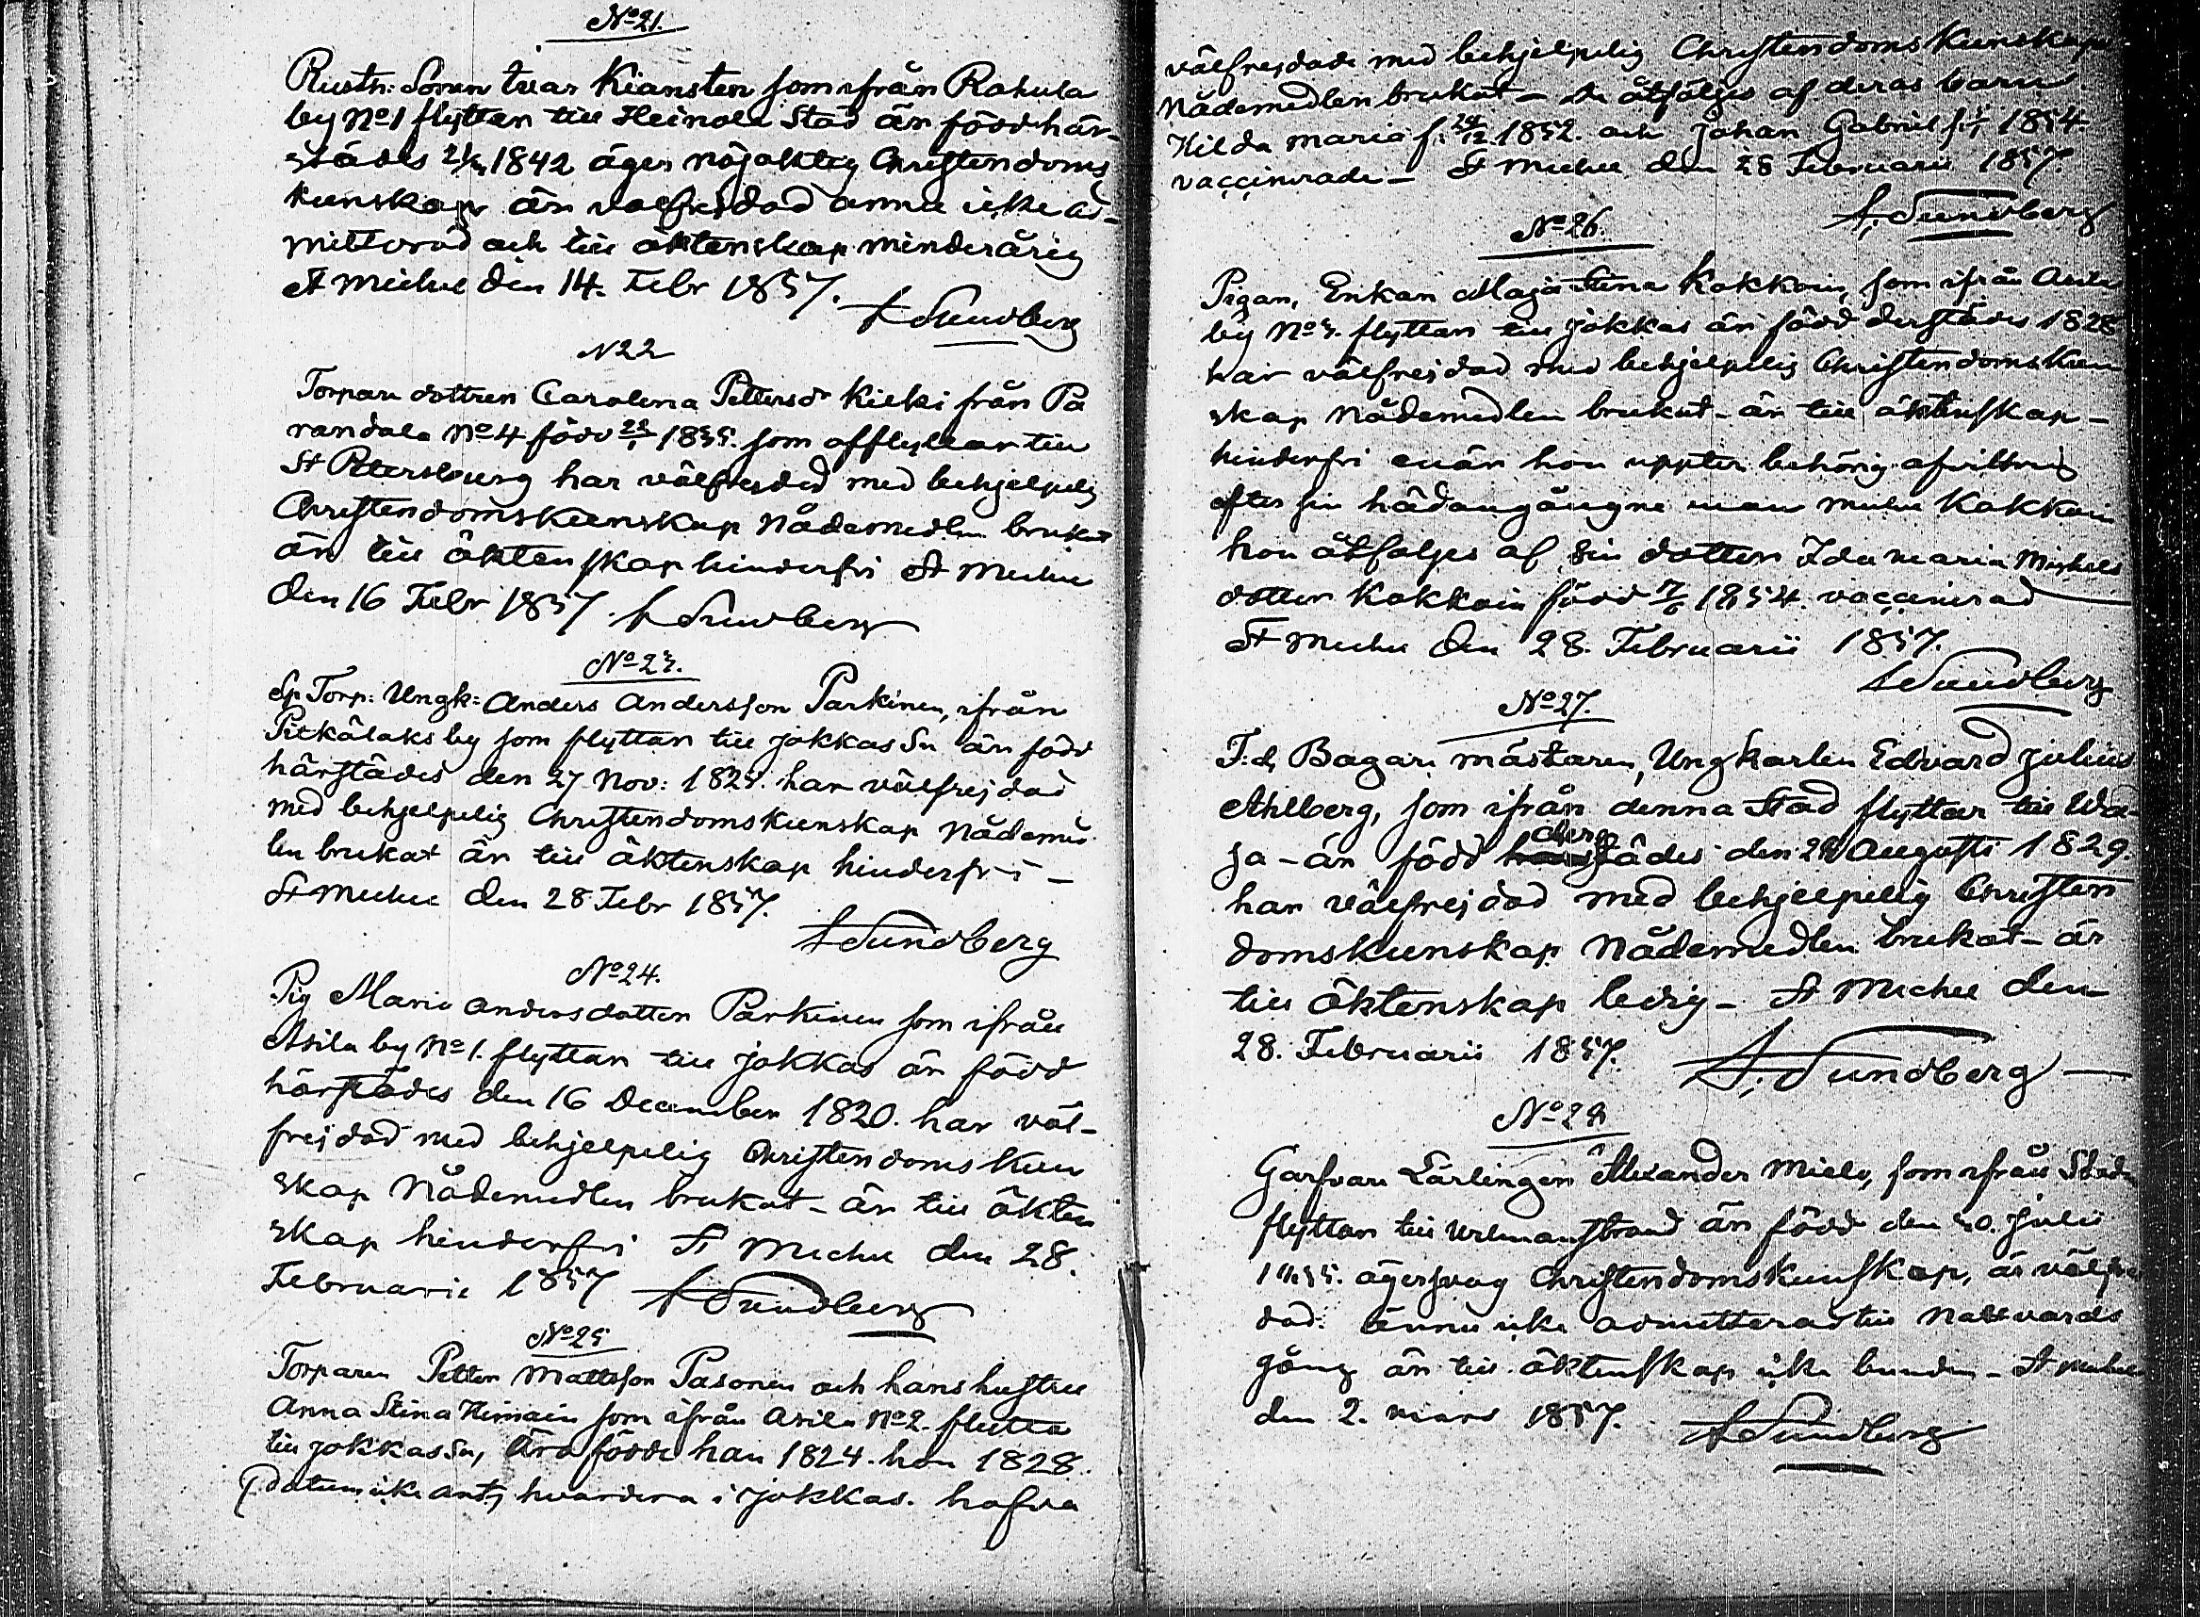 No 21.
Rusth: Sonen Ivar Kiansten som ifrån Rahula
by No 1 flyttar till Heinola Stad är född här-
städes 1842 äger nöjaktig Christendoms
kunskap är välfrejdad ännu icke ad-
mitterad och till äktenskap minderårig
St Michel den 14. Febr 1857.
A Sundberg
N 22
Torpare dottren Carolina Pettersdr Kielki från Pa
randala No 4 född 1835. som afflyttar till
St Petersburg har välfrejdad med behjelpelig
Christendomskunskap Nådemedlen brukat
är till äktenskap hinderfri St Michel
den 16 Febr 1857. A Sundberg
No 23.
Sp Torp: Ungk: Anders Andersson Parkinen, ifrån
Pitkälaks by som flyttar till Jokkas Sn är född
härstädes den 27 Nov: 1823. har välfrejdad
med behjelpelig Christendomskunskap Nådemed
len brukat är till äktenskap hinderfri –
St Michel den 28 Febr 1857.
A Sundberg
No 24.
Pig Maria Andersdotter Parkinen som ifrån
Asila by No 1. flyttar till Jokkas är född
härstädes den 16 December 1820. har väl-
frejdad med behjelpelig Christendoms kun
skap Nådemedlen brukat – är till äkten
skap hinderfri St Michel den 28.
Februarii 1857 A Sundberg
No 25
Torparen Petter Mattsson Pasonen och hans hustru
Anna Stina Himain som ifrån Asila No 2. flytta
till Jokkas Sn, äro födde han 1824. hon 1828.
(datum icke ant) hvardera i Jokkas. hafva
välfrejdade med behjelpelig Christendoms Kunskap
Nådemedlen brukat – De åtföljes af deras barn
Hilda Maria f. 24/12 1852. och Johan Gabriel f. 1854.
vaccinerade – St Michel den 28 Februarii 1857.
A, Sundberg
No 26.
Pigan, Enkan Maja Stina Kakkoin, som ifrån Asila
by No 3. flyttar till Jokkas är född derstädes 1828
har välfrejdad med behjelpelig Christendoms kun
skap Nådemedlen brukat – är till äktenskap –
hinderfri enär hon uppter behörig afvittring
efter sin hädangångne man Michel Kakkoin
hon åtföljes af sin dotter Ida Maria Michels
dotter Kakkoin född 1854. vaccinerad
St Michel den 28. Februarii 1857.
A Sundberg
No 27.
F:d, Bagari mästaren, Ungkarlen Edvard Julius
Ahlberg, som ifrån denna Stad flyttar till Wa-
sa – är född derstädes den 28 Augusti 1829.
har välfrejdad med behjelpelig Christen
domskunskap Nådemedlen brukat – är
till äktenskap ledig – St Michel den
28. Februarii 1857. A, Sundberg
No 28
Garfvare Lärlingen Alexander Miele, som ifrån Staden
flyttar till Wilmanstrand är född den 30. Julii
1835. äger svag Christendomskunskap, är välfrej
dad. ännu icke admitterad till Nattvards
gång är till äktenskap icke bunden – St Michel
den 2. Mars 1857. A Sundberg